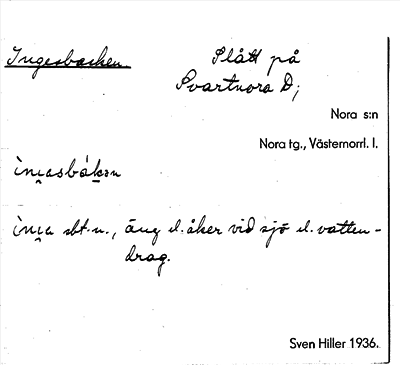 Ingesbacken
Slått på
Svartnora D;
Nora s:n
Nora tg., Västernorrl. l.
ìni̯asbákən
ìni̯a sbt. n., äng el. åker vid sjö el. vatten-
drag.
Sven Hiller 1936.